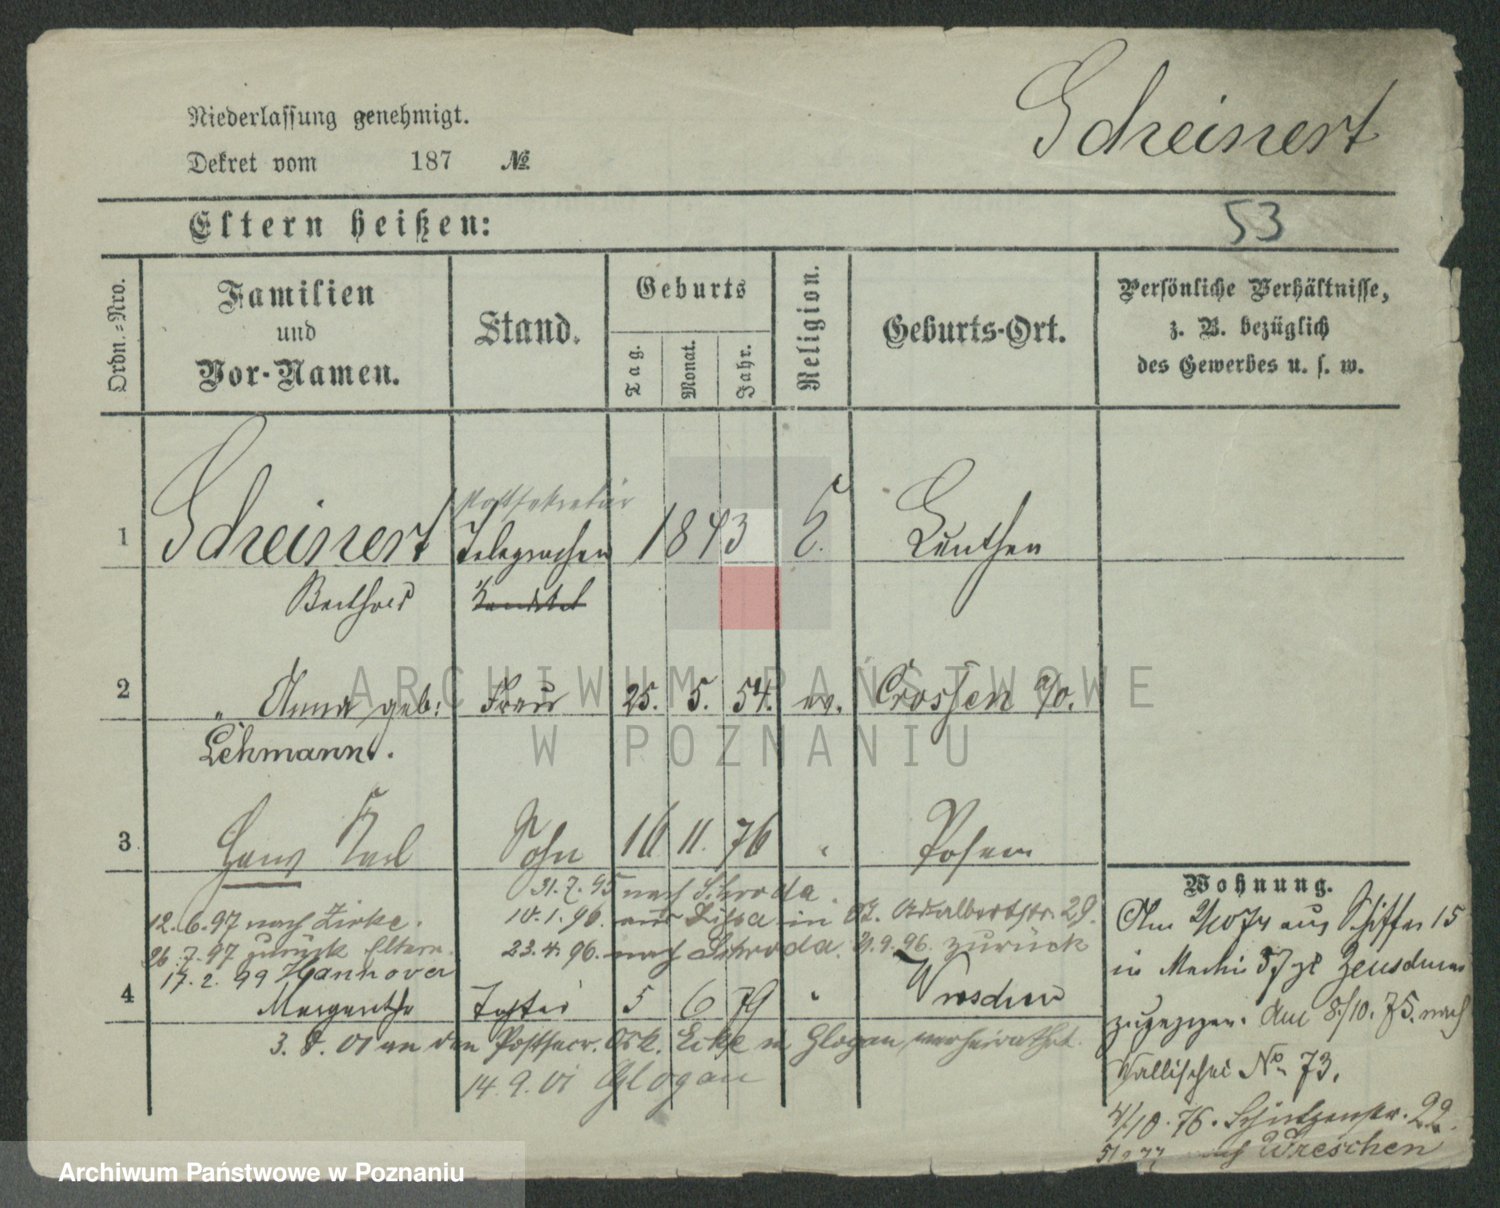 Scheinert
Niederlassung genehmigt.
Dekret vom 187 №
Eltern heißen:
53
Ordn.-Nro.
Familien
und
Vor-Namen.
Stand.
Geburts
Tag.
Monat.
Jahr.
Religion.
Geburts-Ort.
Persönliche Verhältnisse,
z. B. bezüglich
des Gewerbes u. s. w.
Postsekretär
1 Scheinert Telegraphen 1843
Berthold
2 " Anna geb: Frau 25. 5. 54. ev. Crossen a/O.
Lehmann.
ARCHIWUM PAŃSTWOWE
W POZNANIU
3 Hans Karl Sohn 16 11. 76 " Posen
31. 7. 95 nach Schroda.
12. 6. 97 nach Zirke. 10. 1. 96. aus Lissa in Adalbertstr. 29.
26. 7. 97 zurück Eltern. 23. 4. 96. nach Schroda. 21. 9. 96. zurück
17. 2. 99 Hannover
4 Margarethe Tochter 5 6 79 " Wreschen
3. 8. 01 an den Postsecr. Osk. in Glogau verheirathet.
14. 9. 01 Glogau
Wohnung.
Am 2/10 74 aus Schiffer 15
in
zugezogen. Am 8/10. 75. nach
Wallischei No 73.
4/10. 76. Schützenstr. 22.
nach Wreschen
Archiwum Państwowe w Poznaniu